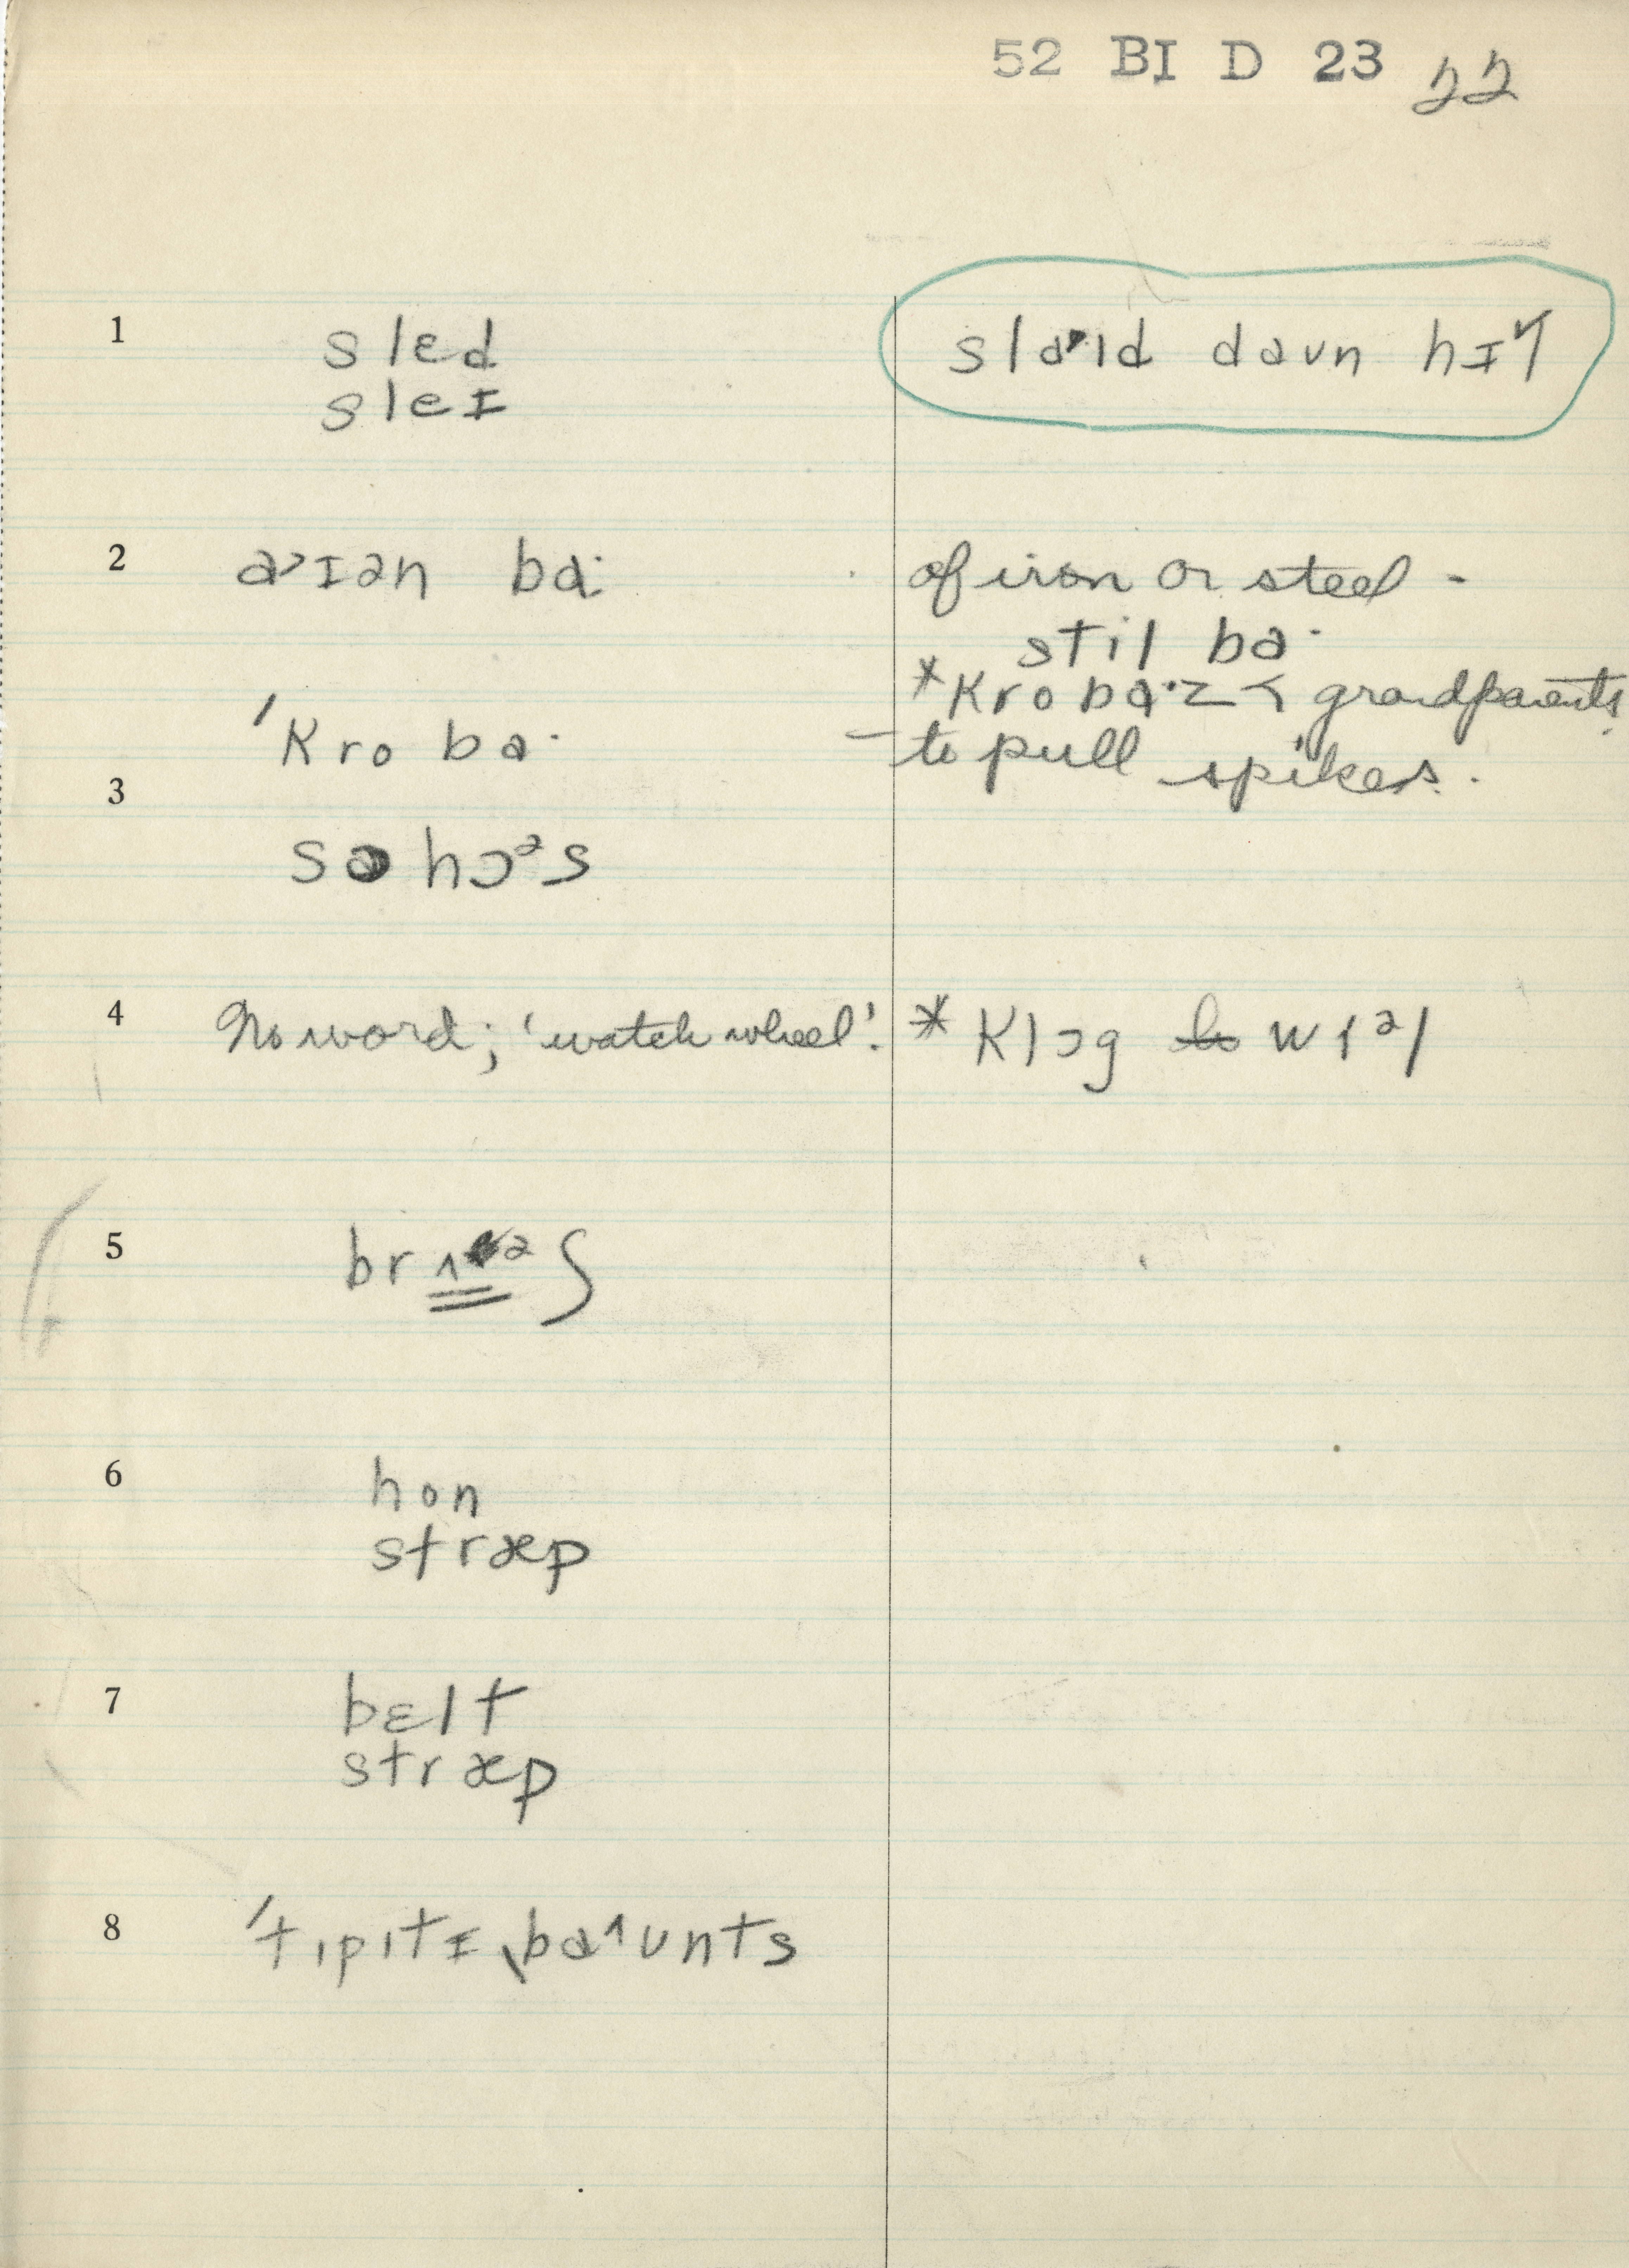 52 BI D 23 22
1 slɛd slaˑɪd daʊn hɪɤ
sleɪ
2 a˃ɪən baː of iron or steel -
stil baˑ
*krobaˑz < grandparents
ˈkrobaˑ - to pull spikes.
3
sə hɔᵊs
4 No word; 'watch wheel'. * klɔg wɪᵊl
5 br ʃ
6 hon
stræp
7 bɛlt
stræp
8 ˈtɪpɪtɪˌba˄ʊnts